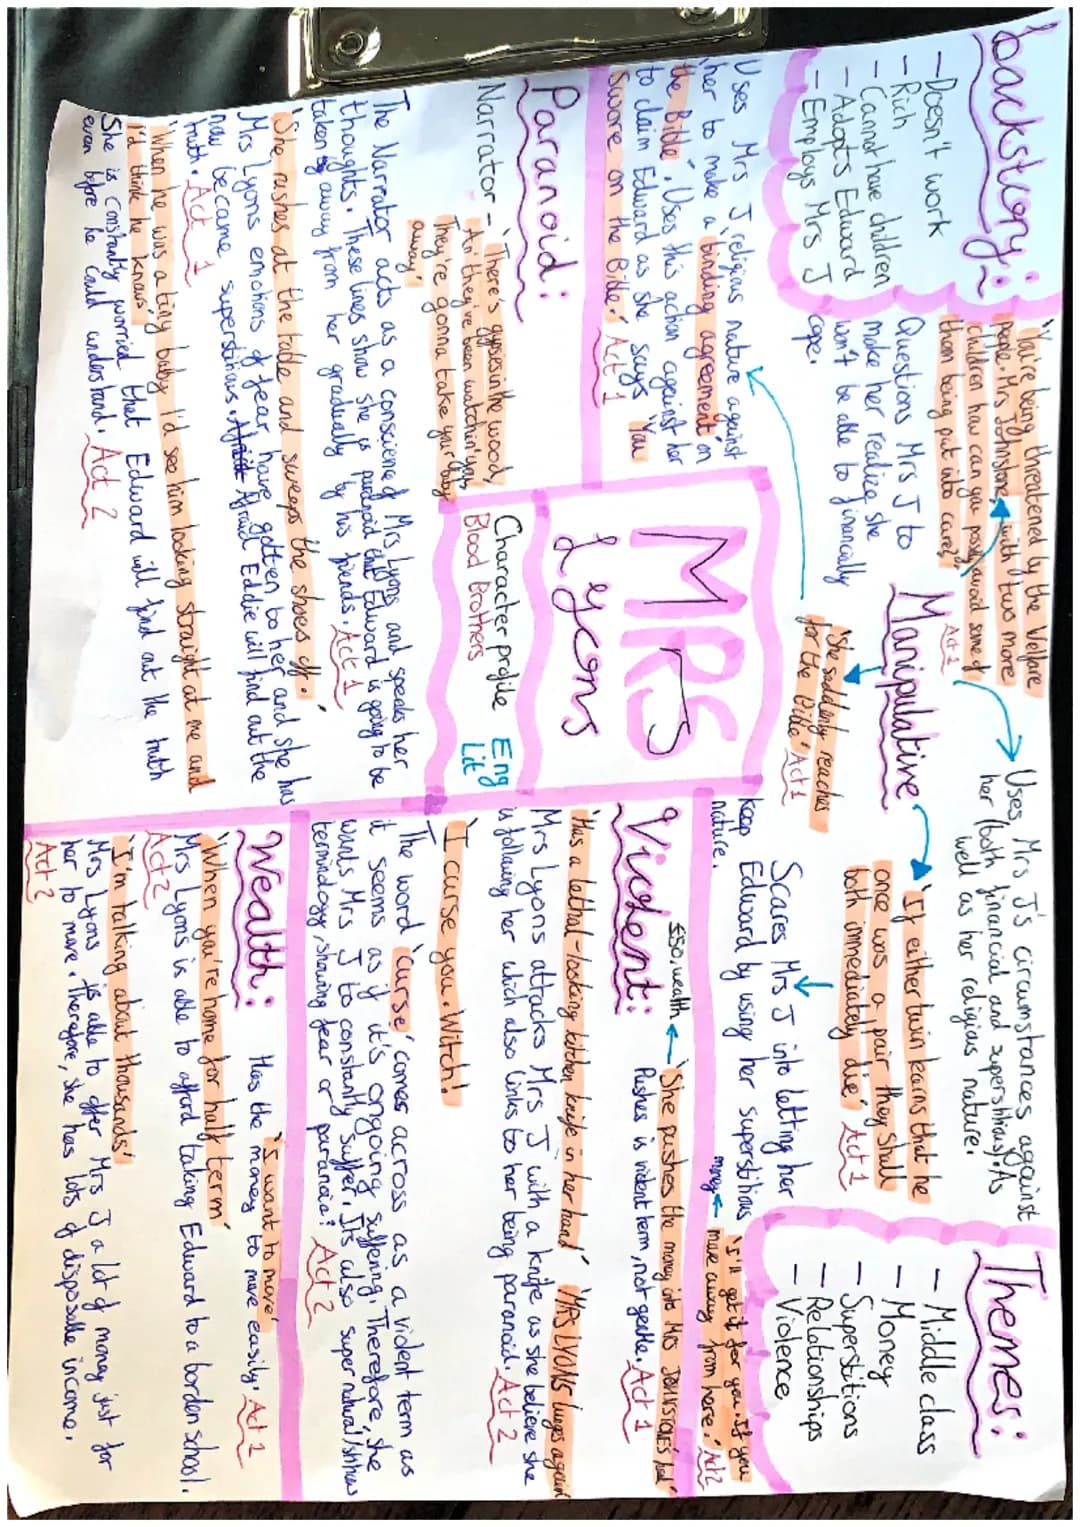 backstory:
- Doesn't work
- Rich
- Cannot have children
- Adopts Edward
- Employs Mrs J
'You're being threatened by the Welfare
people. Mrs Johnstone, with two more
children how can you possibly avoid some of
them being put into care?'
Act 1
Questions Mrs J to
make her realize she
won't be able to financially
cope.
Uses Mrs J's circumstances against
her (both financial and superstitious). As
well as her religious nature.
Manipulative
'If either twin learns that he
once was a pair they shall
both immediately die.' Act 1
Scares Mrs J into letting her
keep Edward by using her superstitious
nature.
'She suddenly reaches
for the Bible' Act 1
Uses Mrs J religious nature against
her to make a 'binding agreement' on
the Bible. Uses this action against her
to claim Edward as she says 'You
swore on the Bible.' Act 1
Themes:
- Middle class
- Money
- Superstitions
- Relationships
- Violence
MRS
Lyons
Character profile
Blood Brothers
Eng
Lit
Paranoid:
Narrator - 'There's gypsies in the wood,
An' they've been watchin' you
They're gonna take your baby
away.'
The Narrator acts as a conscience of Mrs Lyons and speaks her
thoughts. These lines show she is paranoid that Edward is going to be
taken away from her gradually by his friends. Act 1
'She rushes at the table and sweeps the shoes off.'
Mrs Lyons emotions of fear have gotten to her and she has
now became superstitious. Afraid Eddie will find out the
truth. Act 1
'When he was a tiny baby I'd see him looking straight at me and
I'd think he knows'
She is constantly worried that Edward will find out the truth
even before he could understand. Act 2
Violent:
£50, wealth
'She pushes the money into MRS JOHNSTONE'S hand'
Pushes is violent term, not gentle. Act 1
money
'I'll get it for you. If you
move away from here.' Act 2
'Has a lethal-looking kitchen knife in her hand' 'MRS LYONS lunges again'
Mrs Lyons attacks Mrs J with a knife as she believe she
is following her which also links to her being paranoid. Act 2
'I curse you. Witch!
The word 'curse' comes across as a violent term as
it seems as if it's ongoing suffering. Therefore, she
wants Mrs J to constantly suffer. Its also supernatural
terminology, showing fear or paranoia? Act 2
Wealth:
'I want to move'
Has the money to move easily. Act 1
'When you're home for half term'
Mrs Lyons is able to afford taking Edward to a borden school.
Act 2
'I'm talking about thousands'
Mrs Lyons is able to offer Mrs J a lot of money just for
her to move. Therefore, she has lots of disposable income.
Act 2